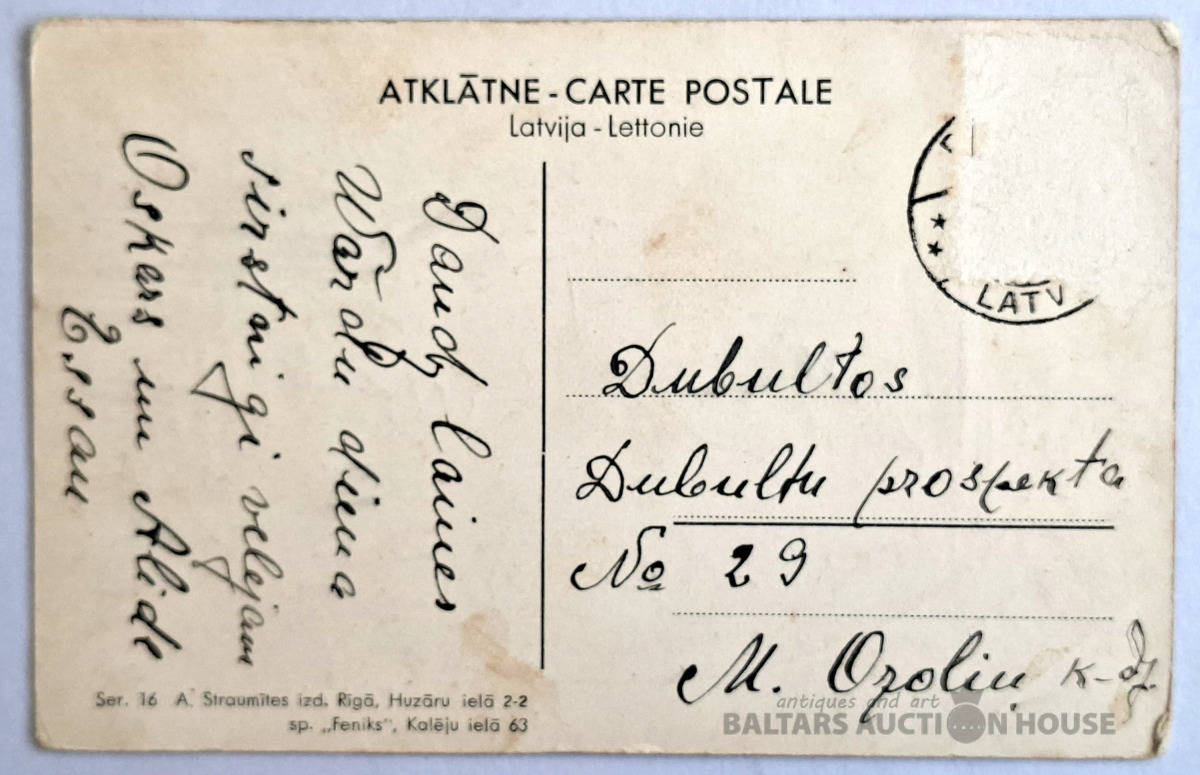 ATKLĀTNE - CARTE POSTALE
Latvija - Lettonie
Daudz laimes
Wārdu dina
sirsnigi vēlejam
Oskars un Alide
Essau
LATV
Dubultos
Dubultu prospekta
No 29
M. Ozoliņ k-dz.
Ser. 16 A. Straumītes izd. Rīgā, Huzāru ielā 2-2
sp. „Feniks", Kalēju ielā 63
antiques and art
BALTARS AUCTION HOUSE